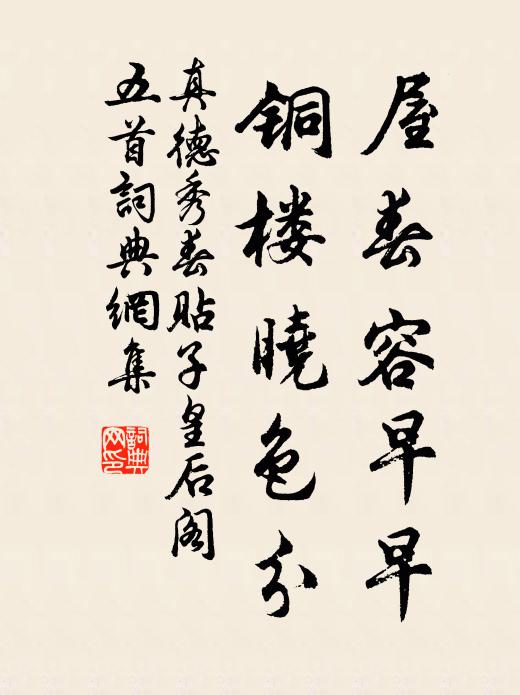 屋春容早早
铜楼曉色分
真德秀春贴子皇后阁
五首詞典網集
詞典
网印